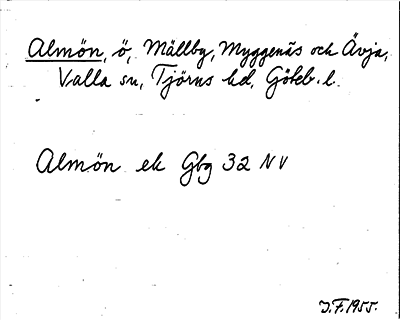 Almön, ö, Mällby, Myggenäs och Ävja,
Valla sn, Tjörns hd, Göteb. l.
Almön ek Gbg 32 NV
J.F. 1955.